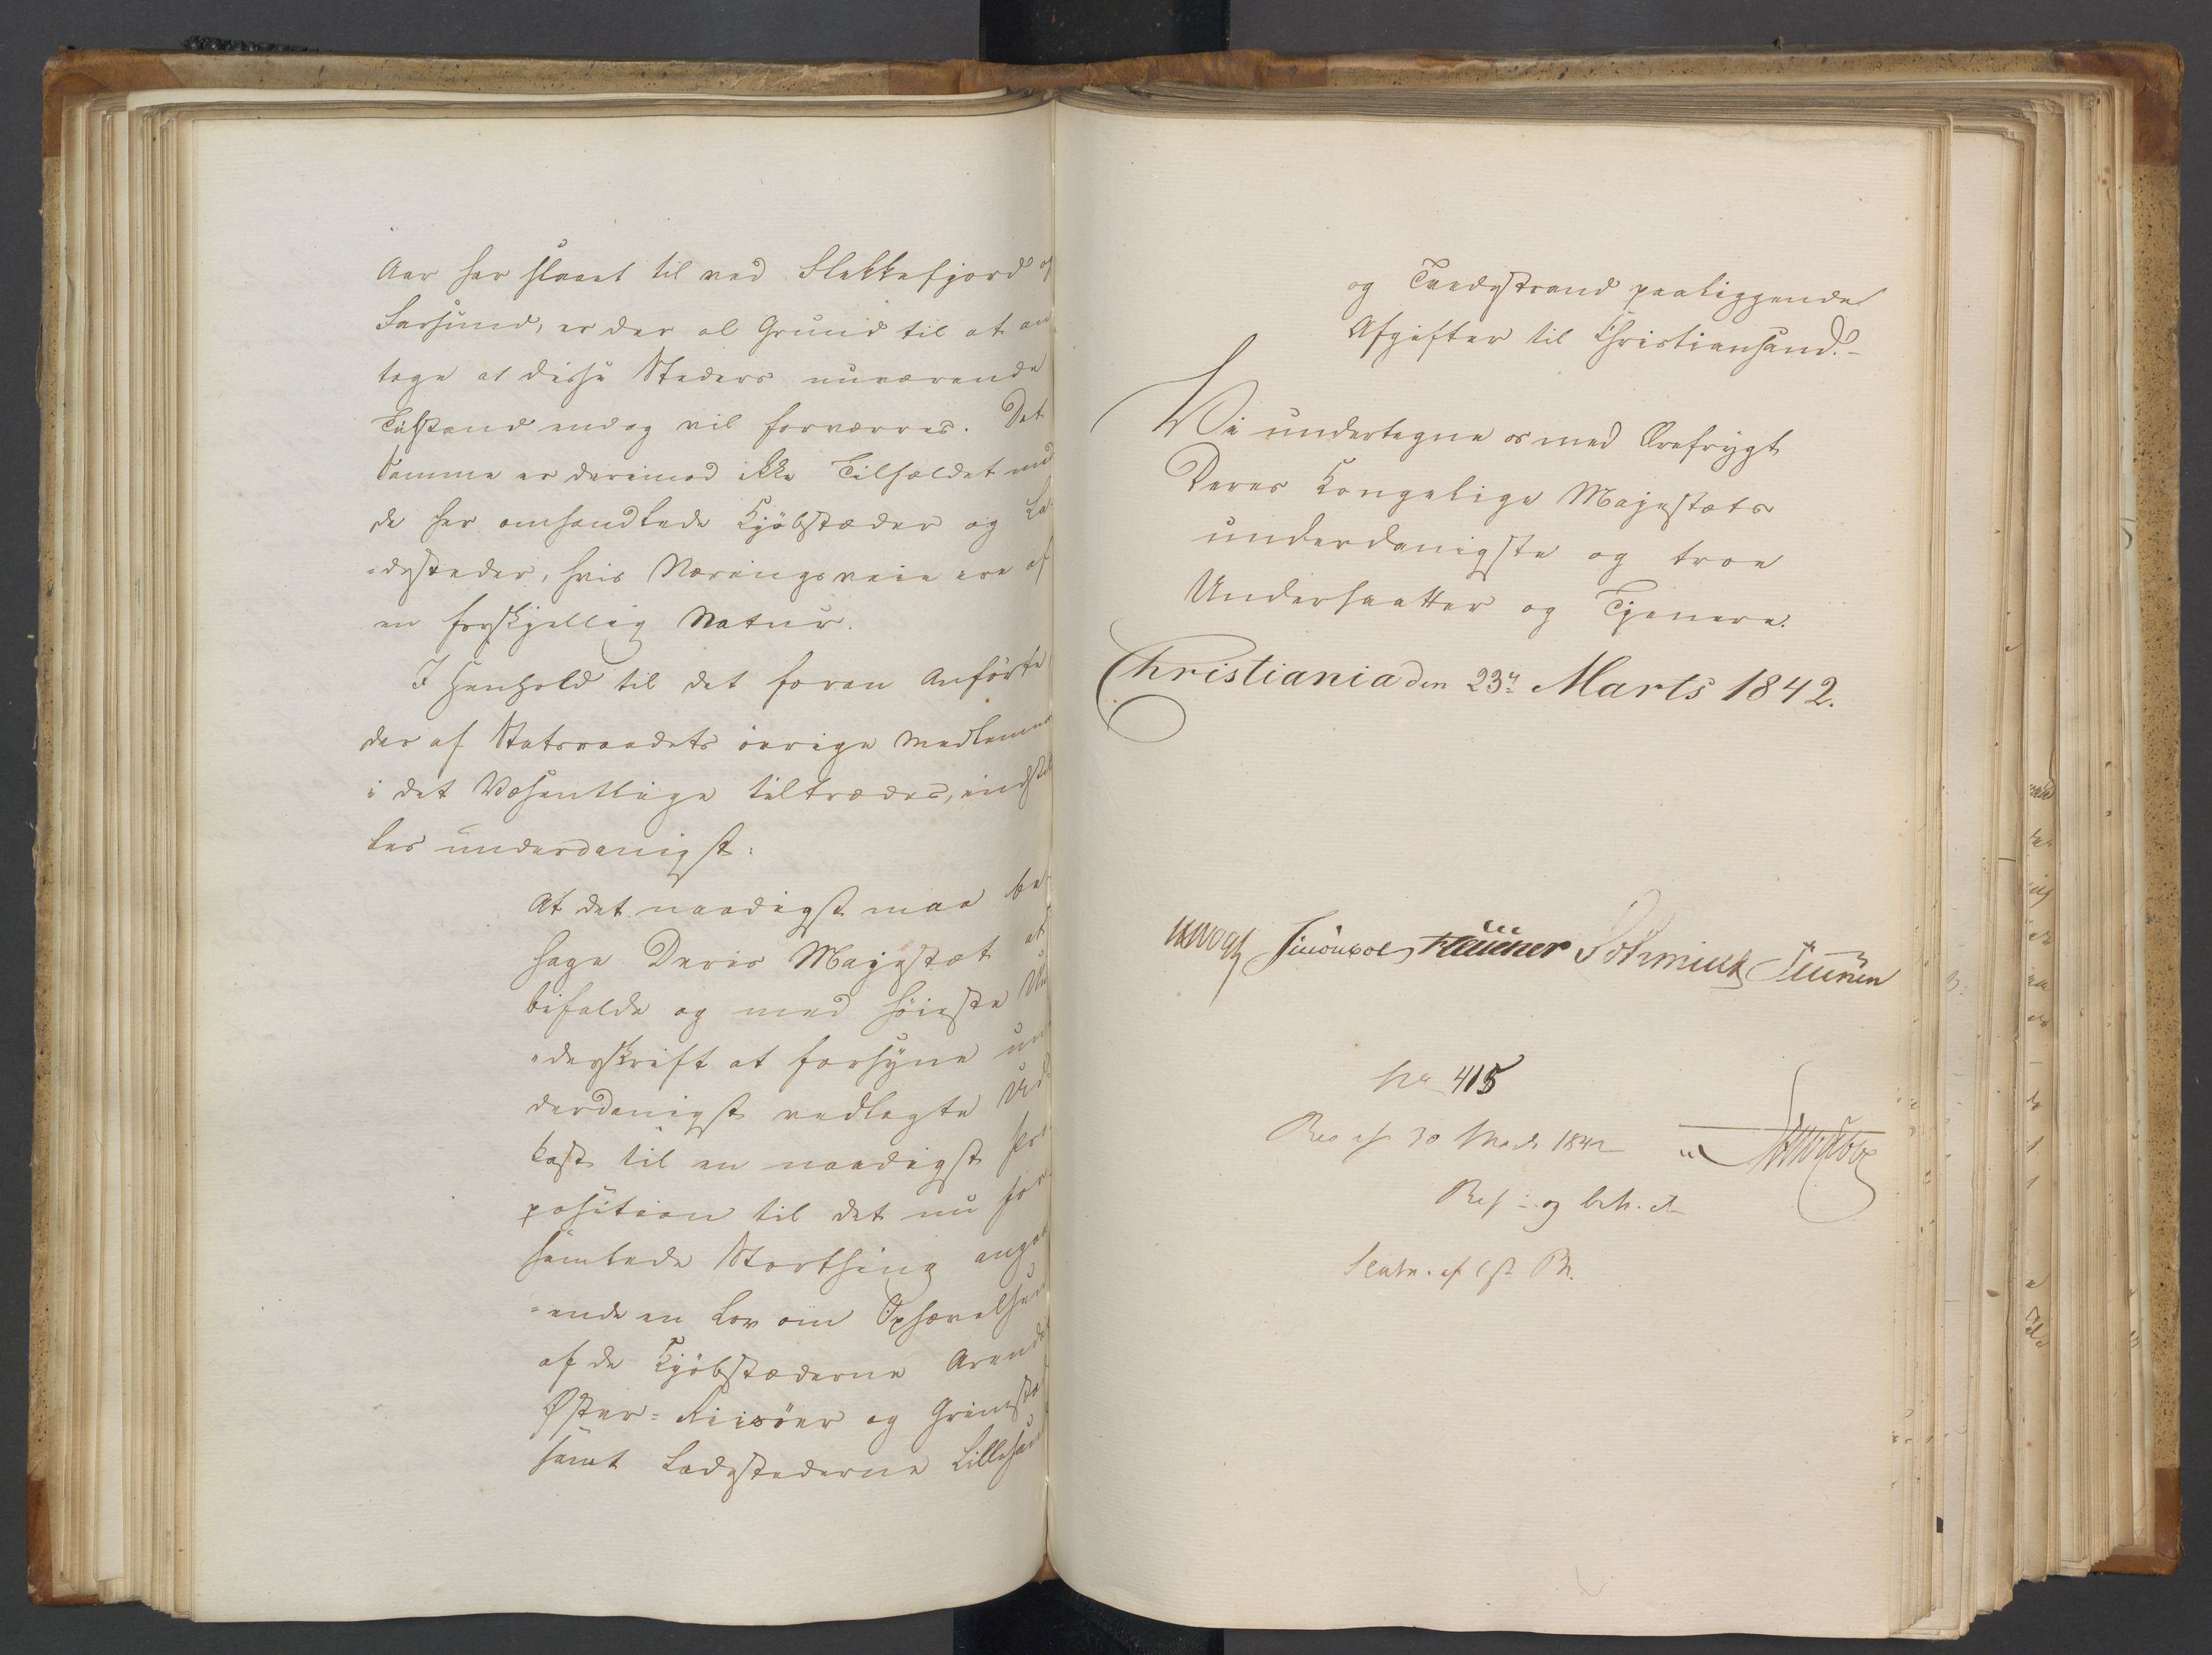 Aar har slaaet til ved Flekkefjord og
Farsund, er der al Grund til at an
tage at disse Steders nuværende
Tilstand endog vil forværres. Det
Samme er derimod ikke Tilfældet med
de her omhandlede Kjöbstæder og La
-desteder, hvis Næringsveie ere af
en forskjellig Natur.
I Henhold til det foran Anförte,
der af Statsraadets övrige Medlemmer
i det Væsentlige tiltrædes, indstil
les underdanigst:
At det naadigst maa be
hage Deres Majestæt at
bifalde og med höieste Un
-derskrift at forsyne un
derdanigst vedlagte Ud
kast til en naadigst Pro
position til det nu for
samlede Storthing angaa
-ende en Lov om Ophævelsen
af de Kjöbstæderne Arendal
Øster-Riisöer og Grimstad
samt Ladestederne Lillesand
og Tvedestrand paaliggende
Afgifter til Christiansand.-
Vi undertegne os med Ærefrygt
Deres Kongelige Majestæts
underdanigste og troe
Undersaatter og Tjenere.
Christiania den 23de Marts 1842.
Vogt
No 415
Res af 30 Marts 1842